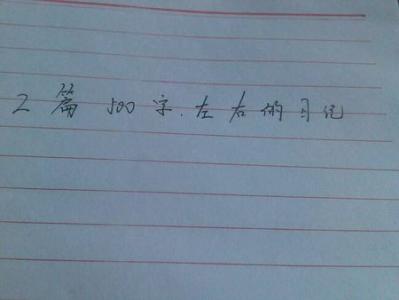 2篇500字.左右的日记